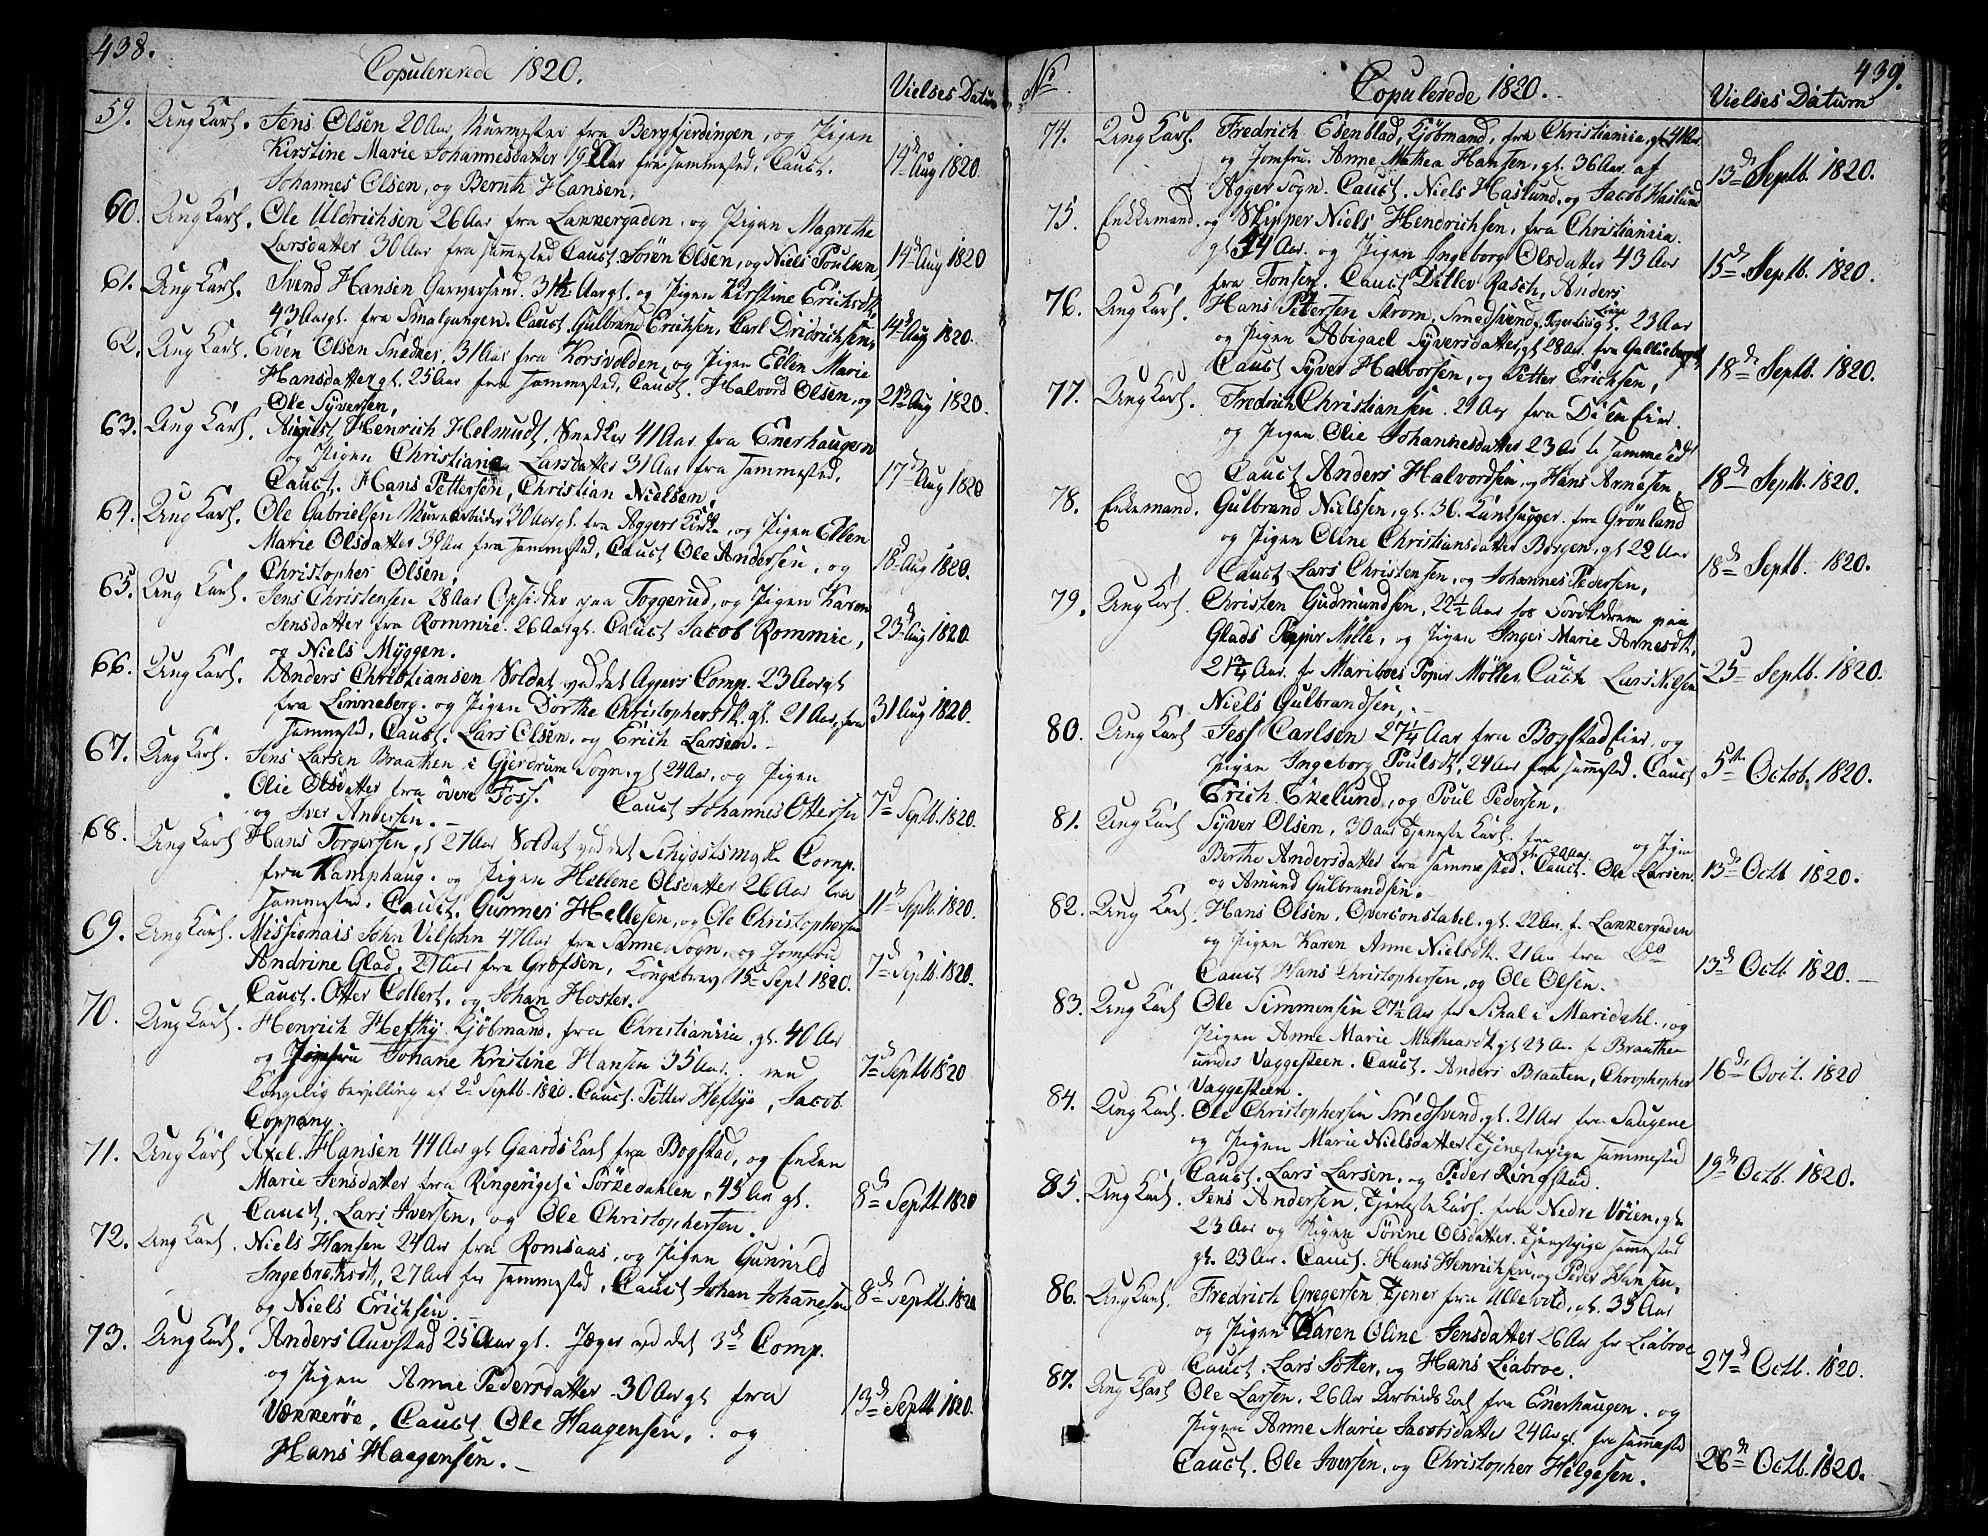 438.
Copulererede 1820.
Vielses Datum
59. Ung Karl. Jens Olsen 20 Aar, Murmester fra Bergfjerdingen, og Pigen
Kirstine Marie Johannesdatter 19 Aar fra sammested, Cauct.
Johannes Olsen, og Bernth Hansen. 14de Aug 1820.
60. Ung Karl. Ole Uldrichsen 26 Aar fra Lakkergaden. og Pigen Magrethe
Larsdatter 30 Aar fra samested Cauct. Sören Olsen, og Niels Poulsen 14de Aug 1820
61. Ung Karl. Svend Hansen Garversvend. 31½ Aar gl. og Pigen Kirstine Erichsdtr,
43 Aar gl. fra Smalgangen. Cauct. Gulbrand Erichsen, Carl Dridrichsen, 14de Aug 1820.
62. Ung Karl. Even Olsen Snedker, 31 Aar fra Korsvolden, og Pigen Ellen Marie
Hansdatter gl. 25 Aar fra sammested, Cauct. Halvord Olsen, og
Ole Syversen, 21de Aug 1820.
63. Ung Karl. August Henrich Helmudt, Snedker 41 Aar fra Enerhaugen
og Pigen Christiane Larsdatter 31 Aar fra sammested,
Cauct. Hans Pettersen, Christian Nielsen. 17de Aug 1820
64. Ung Karl. Ole Gabrielsen Murarbeider 30 Aar gl. fra Aggers Kirke, og Pigen Ellen
Marie Olsdatter 39 Aar fra sammested, Cauct Ole Andersen, og
Christopher Olsen. 18de Aug 1820.
65. Ung Karl. Jens Christensen 28 Aar Opsidder paa Toggerud, og Pigen Karen
Jensdatter fra Rommie. 26 Aar gl. Cauct Jacob Rommie,
og Niels Myggen. 23de Aug 1820.
66. Ung Karl. Anders Christiansen Soldat ved det Aggers Comp. 23 Aar gl
fra Linneberg. og Pigen Dorthe Christophersdtr. gl. 21 Aar, fra
sammested, Cauct. Lars Olsen, og Erich Larsen. 31 Aug 1820.
67. Ung Karl. Jens Larsen Braathen i Gjerdrum Sogn, gl 24 Aar, og Pigen
Olie Olsdatter fra övere Foss. Cauct Johannes Ottersen
og Iver Andersen. 7de Septb. 1820.
68. Ung Karl Hans Torgersen, gl 27 Aar Soldat ved det Schydtsmgke Comp.
fra Kamphaug. og Pigen Hellene Olsdatter 26 Aar fra
sammested, Cauct. Gunner Hellesen, og Ole Christophersen 11de Septb. 1820.
69. Ung Karl. Missionais John Vilsohn 47 Aar fra Sanne Sogn, og Jomfrue
Andrine Glad, 27 Aar fra Grofsen, Kongebrev 15de Sept 1820.
Cauct. Otter Collert, og Johan Koster. 7de Septb 1820.
70. Ung Karl. Henrich Hefthy Kjöbmand, fra Christiania, gl. 40 Aar
og Jomfru Johane Kristine Hansen 35 Aar. med
Kongelig bevilling af 2de Septb. 1820. Cauct. Petter Heftye, Jacob
Coppang. 7de Septb 1820
71. Ung Karl Axel Hansen 44 Aar gl Gaards Karl fra Bogstad, og Enken
Marie Jensdatter fra Ringeriget i Sörkedahlen, 45 Aar gl.
Cauct. Lars Iversen, og Ole Christophersen. 8de Septb 1820
72. Ung Karl. Niels Hansen 24 Aar fra Romsaas, og Pigen Gunnild
Ingebrethsdt, 27 Aar fra sammested, Cauct Johan Johanesen
og Niels Erichsen. 8de Septb. 1820
73. Ung Karl. Anders Auvstad 25 Aar gl. Jæger ved det 3de Comp.
og Pigen Anne Pedersdatter 30 Aar gl fra
Vækkeröe, Cauct Ole Haagensen, og
Hans Haagensen. 13de Septb 1820.
439.
No.
Copulerede 1820.
Vielses Datum
74. Ung Karl. Fredrich Esenblad, Kjöbmand, fra Christiania, gl 41 Aar
og Jomfru. Anne Mathea Hansen, gl. 36 Aar. af
Agger Sogn. Cauct. Niels Haslund, og Jacob Haslund 13de Septb. 1820.
75. Enkkemand. og Skipper Niels Hendrichsen, fra Christiania.
gl. 44 Aar. og Pigen Ingeborg Olsdatter 43 Aar
fra Tonsen. Cauct Ditlev Rasch, Anders 15de Septb. 1820.
76. Ung Karl. Hans Petersen Strom, Smedsvend, gl. 23 Aar
og Pigen Abigael Syversdatter, gl 28 Aar. fra Gallieberget
Cauct Syver Halvorsen, og Petter Erichsen, 18de Septb. 1820.
77. Ung Karl. Fredrich Christiansen. 29 Aar fra Disen Eier.
og Pigen Olie Johannesdatter 23 Aar fra sammested
Cauct Anders Halvordsen, og Hans Arnesen 18de Septb. 1820.
78. Enkemand. Gulbrand Nielssen, gl. 36. fra Grönland
og Pigen Oline Christiansdatter Borgen, gl 22 Aar
Cauct Lars Christensen, og Johannes Pedersen, 18de Septb. 1820.
79. Ung Karl. Christen Gudmundsen, 22½ Aar paa
Glads Papir Mölle, og Pigen Inger Marie Arnesdtr,
21¾ Aar. fr Mariboes Papir Möller Cauct Lars Nilsen
Niels Gulbrandsen. 25de Septb. 1820.
80. Ung Karl Jess Carlsen 27¼ Aar fra Bogstad Eier, og
Pigen Ingeborg Poulsdt, 24 Aar fra sammested. Cauct
Erich Ekelund, og Poul Pedersen, 5te Octob. 1820.
81. Ung Karl Syver Olsen, 30 aar Tjeneste Karl. fra og Pigen
Berthe Andersdatter fra sammested gl. 20 Aar. Cauct. Ole Larsen
og Amund Gulbrandsen. 13de Octb 1820.
82. Ung Karl. Hans Olsen, Overconstabel, gl. 22 Aar. f. Lakkergaden
og Pigen Karen Anne Nielsdtr. 21 Aar fra Do
Cauct Hans Christophersen, og Ole Olsen. 13de Octb 1820.
83. Ung Karl Ole Simmensen 27½ Aar fr Skal i Maridahl. og
Pigen Anne Marie Mathiasdtr gl 23 Aar fr Braathen
under Vaggesteen. Cauct. Anders Braaten, Chrophopher
Vaggesteen. 16de Oct. 1820
84. Ung Karl. Ole Christophersen Smedsvend, gl. 21 Aar fra Saugene
og Pigen Marie Nielsdatter Tjenestepige sammested
Cauct. Lars Larsen, og Peder Ringstad. 19de Octb. 1820.
85. Ung Karl. Jens Andersen, Tjeneste Karl. fra Nedre Vöien, gl.
23 Aar og Pigen Sörine Olsdatter. Tjenstpige samested
gl. 23 Aar. Cauct. Hans Henrichsen, og Peder Hansen.
86. Ung Karl. Fredrich Gregersen Tjener fra Ullevold, gl. 35 Aar
og Pigen Karen Oline Jensdatter 26 Aar fr Liabroe
Cauct. Lars Sotter, og Hans Liabroe. 27de Octb. 1820.
87. Ung Karl Ole Larsen, 26 Aar Arbeids Karl fra Enerhaugen. og
Pigen Anne Marie Jacobsdatter 24 Aar gl. fra samested
Cauct. Ole Iversen, og Christopher Helgesen. 26de Octb. 1820.